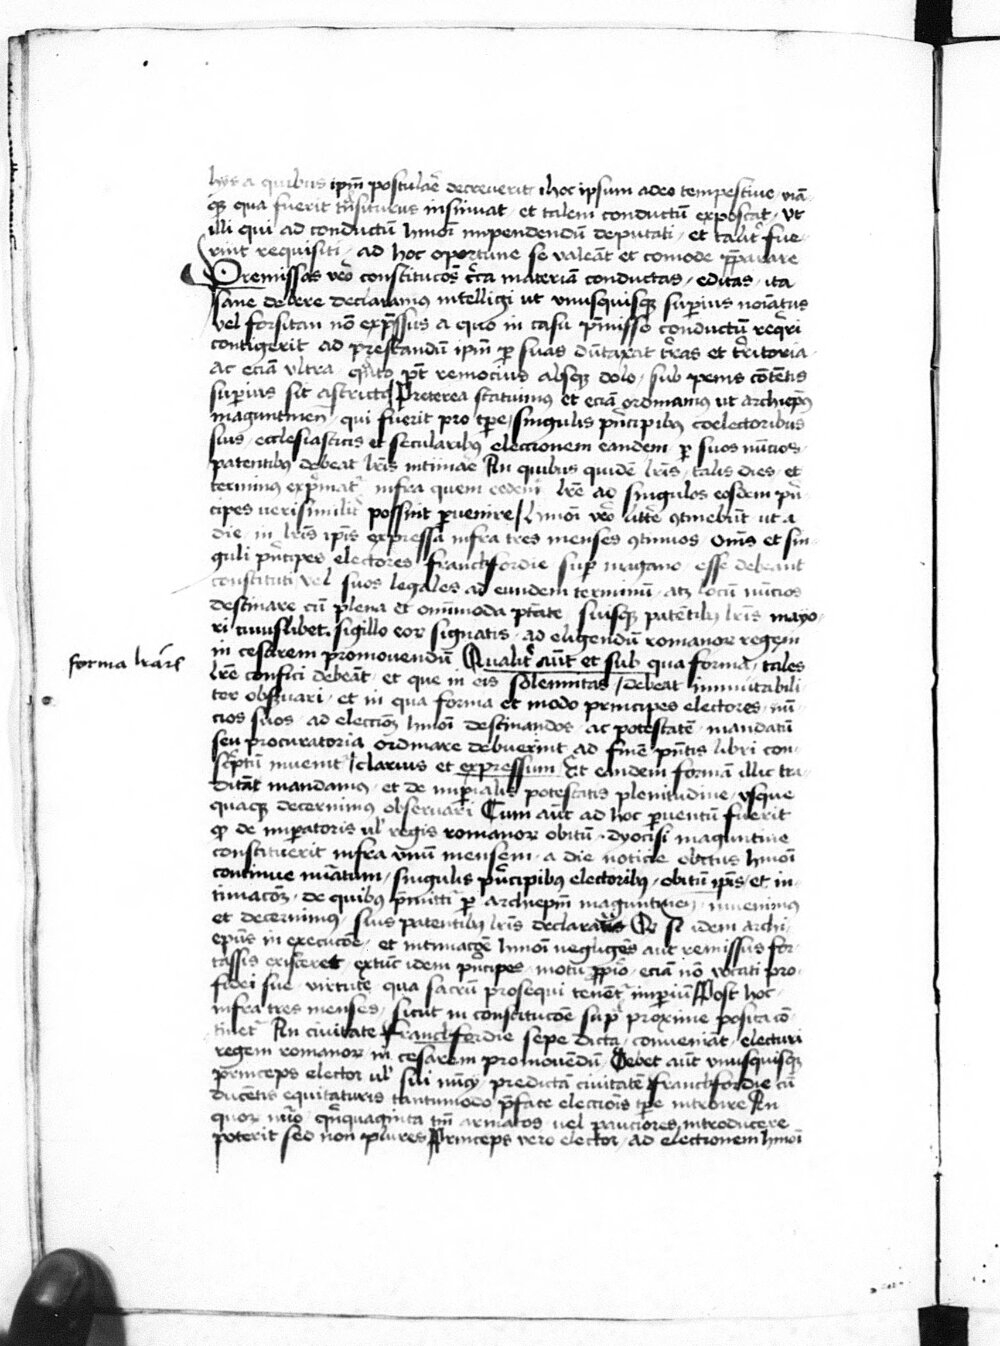 hys a quibus ipm̄ postulare decreverit ⁊ hoc ipsum adeo tempestive viā
qz qua fuerit tn̄siturus insinuat et talem conductū exposcat ut
illi qui ad conductū hmoi impendendū deputati et talit̄ fue-
rint requisiti ad hoc oportune se valeāt et comode p̄parare
Premissas vero constitucōēs circa materiā conductus editas ita
sane debere declaramus intelligi ut vnusquisqz superius noīatus
vel forsitan nō exp̄ssus a quo in casu p̄misso conductū requiri
contigerit ad prestandū ipm̄ p suas dūtaxat tr̄ras et tr̄ritoria
ac eciā ultra quāto pt̄ remocius absqz dolo sub penis cōtētis
superius sit astrictus Preterea statuimus et eciā ordinamus ut archiepūs
maguntinen̄ qui fuerit pro tpe singulis prīcipibus coelectoribus
suis ecclesiasticis et secularibus eleccionem eandem p suos nūcios
patentibus debeat lr̄is intimare In quibus quidē lr̄is talis dies et
terminus exprimat infra quem eedem lr̄e ad singulos eosdem prī
cipes verisimilit̄ possint pervenire hmoi vero littere ꝯtinebūt ut a
die in lr̄is ipīs expressa infra tres menses ꝯtinuos om̄s et sin-
guli prīcipes electores Franckfordie super magano esse debeant
constituti vel suos legales ad eundem terminū atqz locū nūcios
destinare cū plena et omīmoda ptāte suisqz patētibus lr̄is mayo-
ri cuiuslibet sigillo eor signatis ad eligendū romanor regem
in cesarem promovendū Qualit̄ aūt et sub qua forma tales
forma lr̄arū
lr̄e confici debeāt et que in eis solemnitas debeat inmutabili
ter observari et in qua forma et modo principes electores nū-
cios suos ad eleccionē hmoi destinandos ac potestatē mandatū
seu procuratoria ordinare debuerint ad finē p̄ntis libri con-
scriptū invenit̄ clarius et expressum Et eandem formā illic tra-
ditāt mandamus et de imperialis potestatis plenitudine vsque
quaqz decernimus observari Cum aūt ad hoc pventū fuerit
qp de imperatoris ul̄ regis romanor obitū dyocesi maguntine
constiterit infra vnū mensem a die noticie obitus hmoi
continue nūatum singulis prīcipibus electoribus obitū ipīs et in-
timacōē de quibus p̄mittit̄ p archiepm̄ maguntinen̄ invenimus
et decernimus suis patentibus lr̄is declarari Qp si idem archi-
epūs in execucōē et intimacōē hmoi negligēs aut remissus for
tassis existeret extūc idem prīcipes motu pprio eciā nō vocati pro
fidei sue virtute qua sacrū prosequi tenent̄ imperiū Post hoc
infra tres menses sicut in constitucōē supra proxime posita cō-
tinet̄ In civitate Franckfordie sepe dicta conveniāt electuri
regem romanor in cesarem promovendū Debet aūt vnusquisqz
princeps elector ul̄ sui nūcy predictā civitatē franckfordie cū
ducētis equitaturis tantumodo p̄fate eleccionis tpe introire In
quor nūo qn̄quaginta tm̄ armatos vel pauciores introducere
poterit sed non plures Princeps vero elector ad electionem hmoi